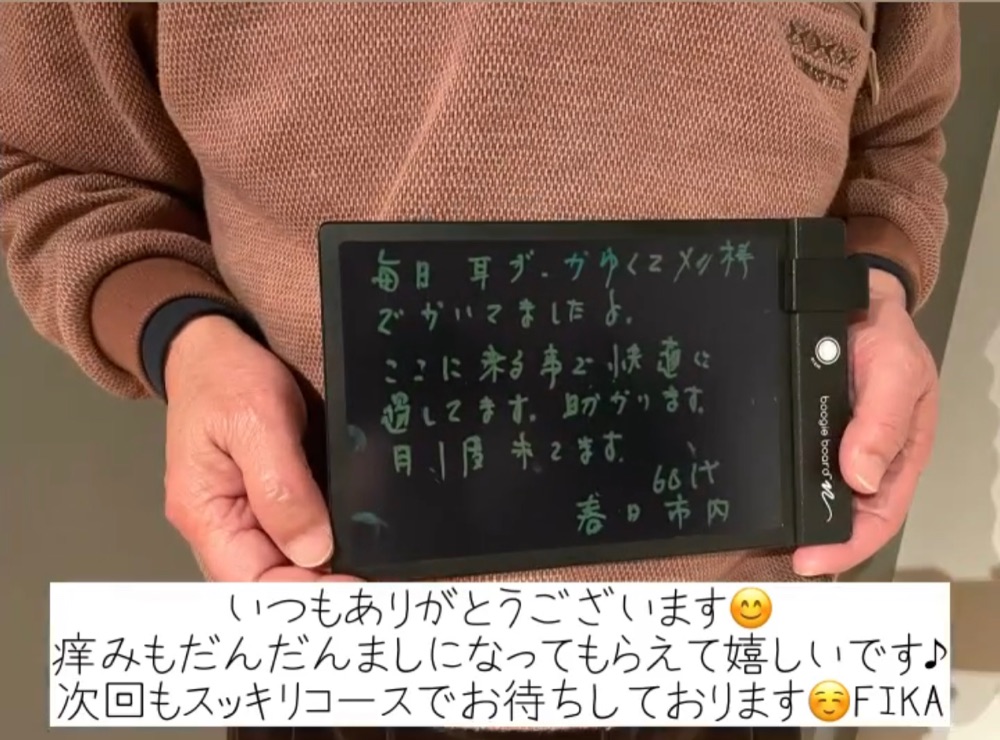 毎日 耳が、かゆくて メン棒
でかいてましたよ。
ここに来る事で快適に
過してます。助かります。
月1度来てます。
60代
春日市内
boogie board
いつもありがとうございます😊
痒みもだんだんましになってもらえて嬉しいです♪
次回もスッキリコースでお待ちしております☺️FIKA